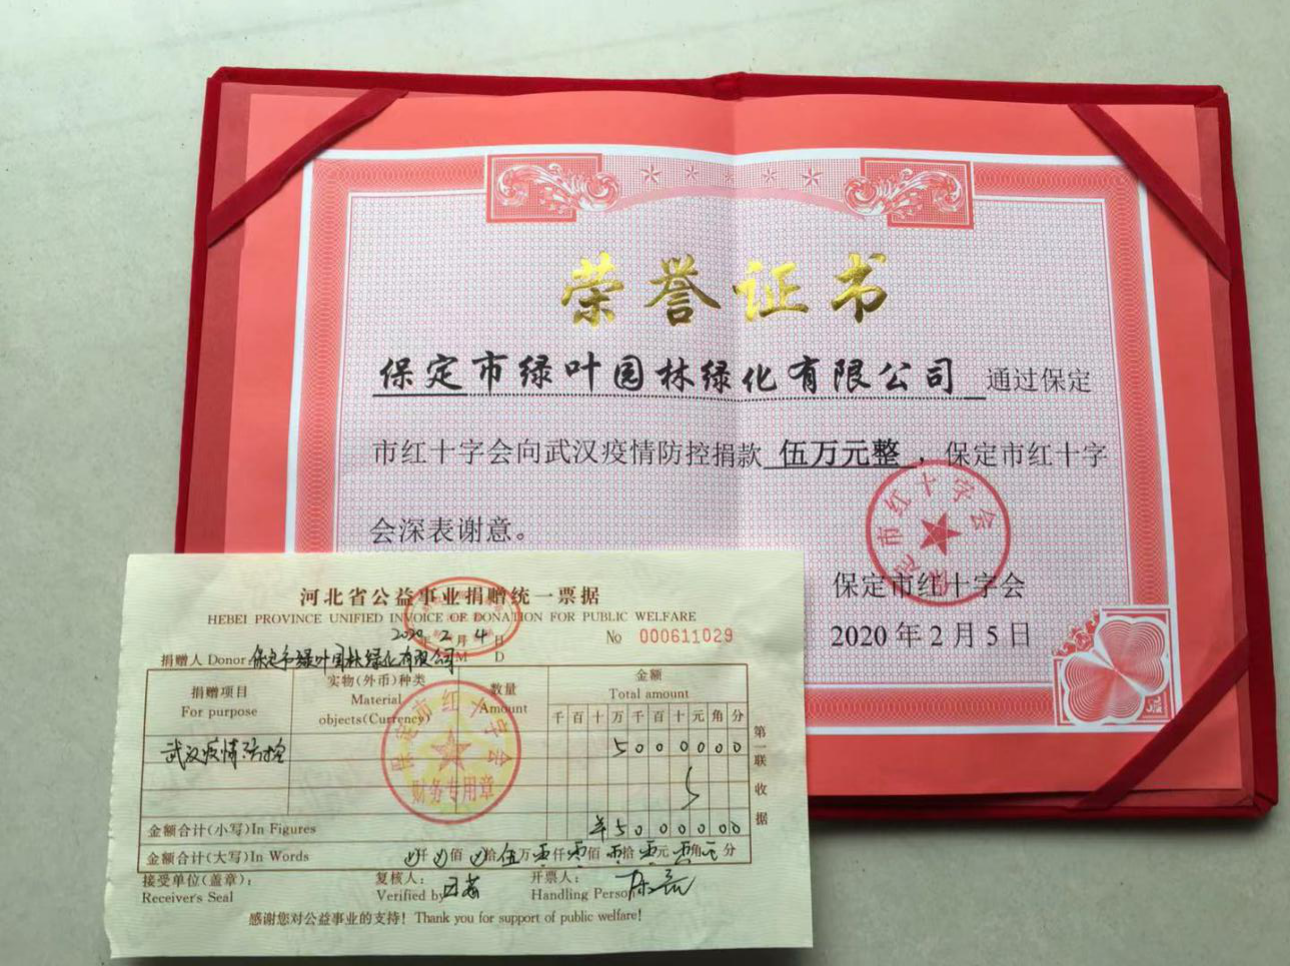 荣誉证书
保定市绿叶园林绿化有限公司 通过保定
市红十字会向武汉疫情防控捐款 伍万元整 ，保定市红十字
会深表谢意。
保定市红十字会
保定市红十字会
2020年2月5日
河北省公益事业捐赠统一票据
HEBEI PROVINCE UNIFIED INVOICE OF DONATION FOR PUBLIC WELFARE
2020 年 2 月 4 日 No 000611029
捐赠人 Donor: 保定市绿叶园林绿化有限公司 M D
捐赠项目 For purpose
实物(外币)种类 Material objects(Currency)
数量 Amount
金额 Total amount
千 百 十 万 千 百 十 元 角 分
武汉疫情防控 5 0 0 0 0 0 0
保定市红十字会
财务专用章
金额合计(小写)In Figures ¥ 5 0 0 0 0 0 0
金额合计(大写)In Words 仟 佰 拾 伍 万 零 仟 零 佰 零 拾 零 元 零 角 分
接受单位(盖章)： 复核人： 开票人：
Receiver's Seal Verified by Handling Person
感谢您对公益事业的支持！Thank you for support of public welfare!
第一联 收据